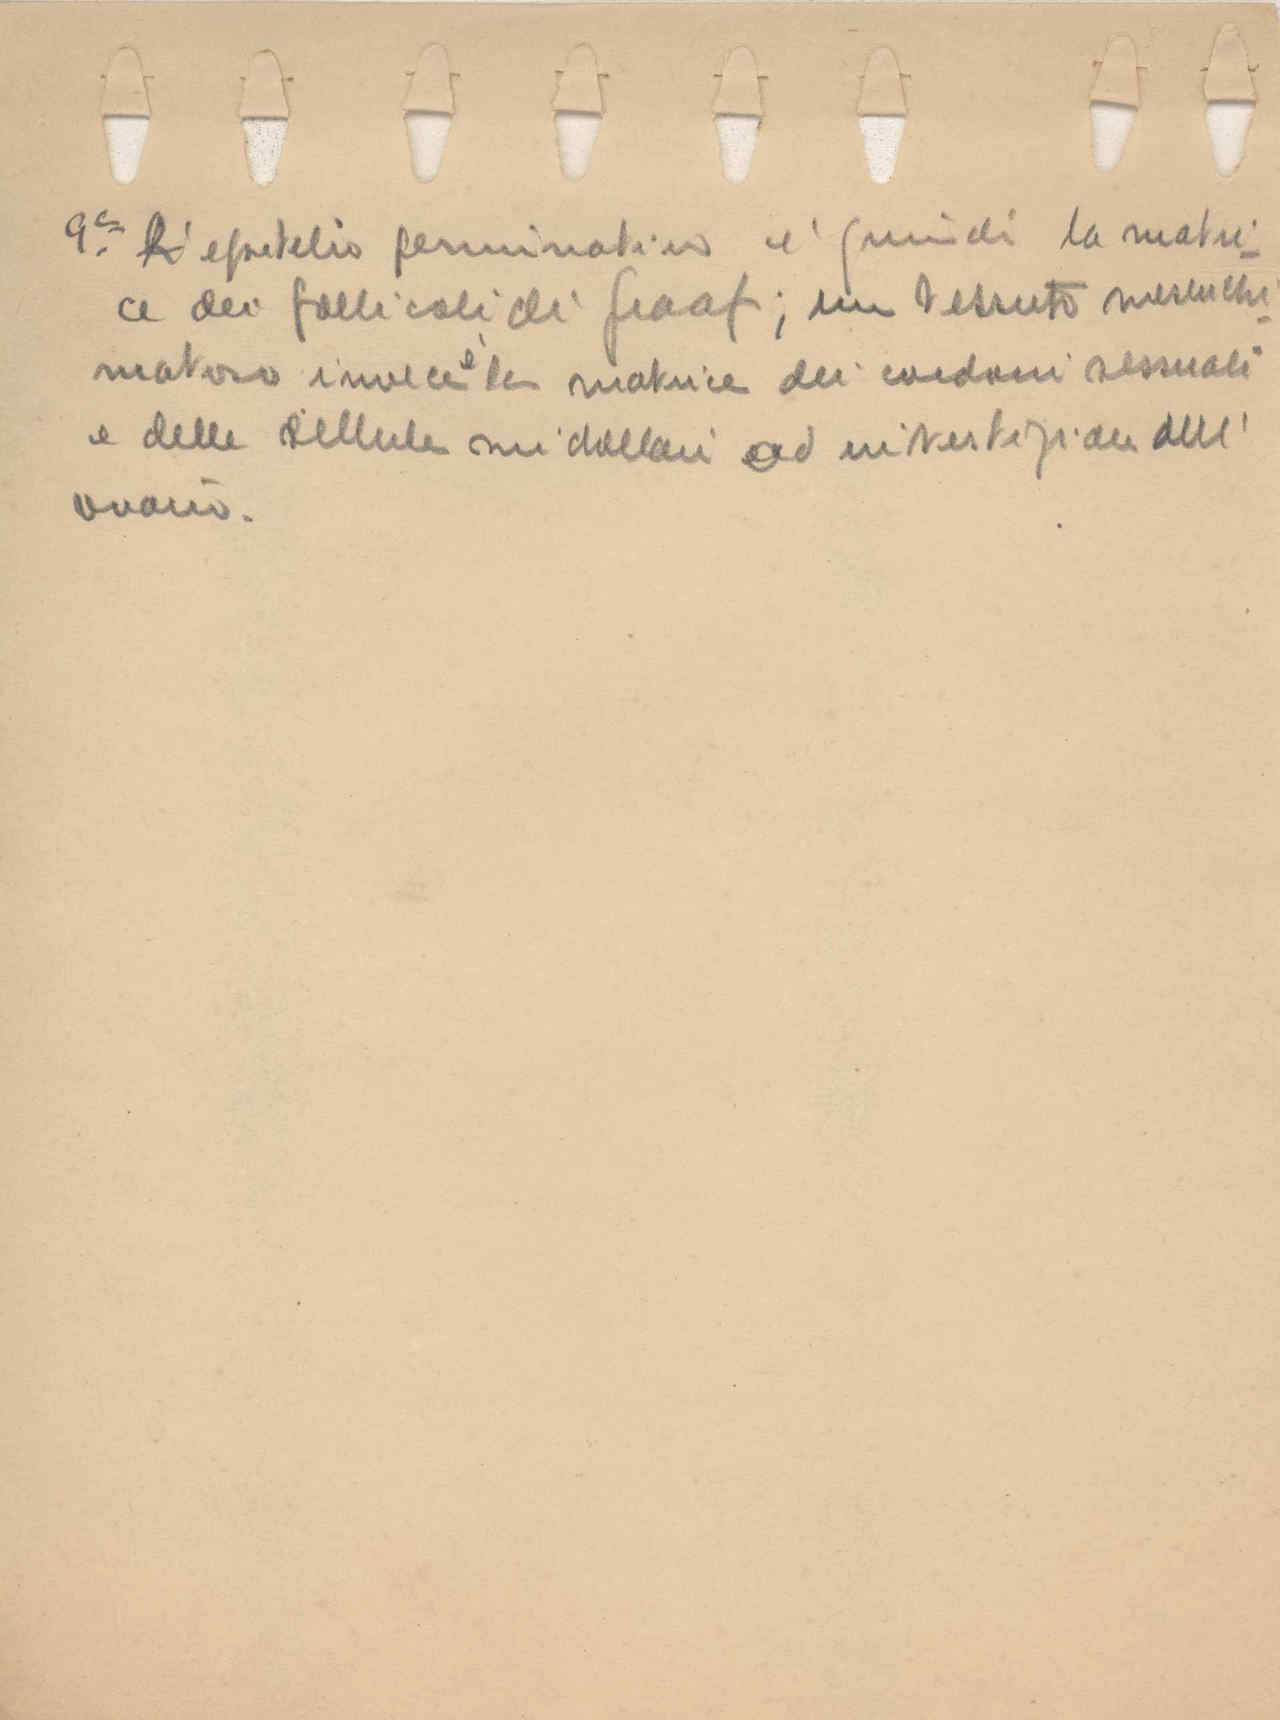 9a. L'epitelio germinativo e' quindi la matri-
ce dei follicoli di Graaf; un tessuto mesenchi-
matoso invece è la matrice dei cordoni sessuali
e delle cellule midollari ed interstiziali dell'
ovario.